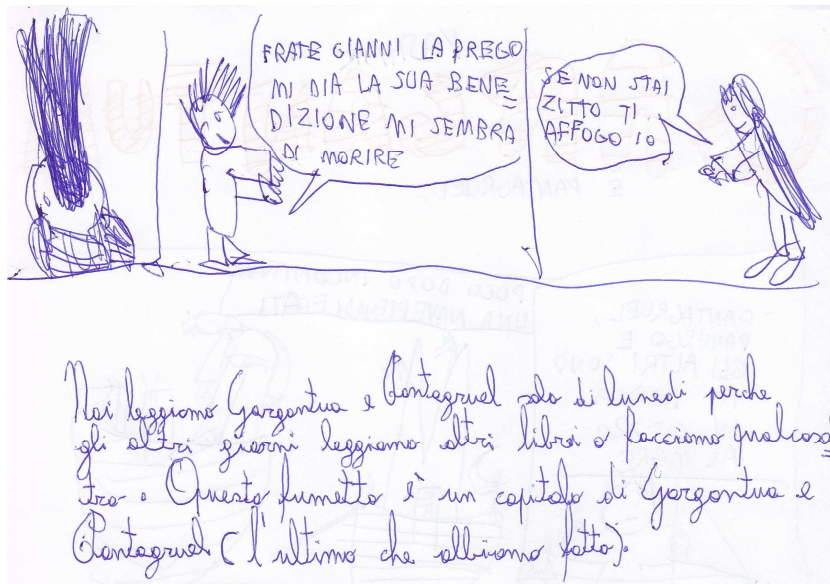 FRATE GIANNI LA PREGO
MI DIA LA SUA BENE=
DIZIONE MI SEMBRA
DI MORIRE
SE NON STAI
ZITTO TI
AFFOGO IO
Noi leggiamo Gargantua e Pantagruel solo di lunedì perche
gli altri giorni leggiamo altri libri o facciamo qualcosal=
tro. Questo fumetto è un capitolo di Gargantua e
Pantagruel (l'ultimo che abbiamo fatto).
E PANTAGRUEL
POCO DOPO INCONTRANO
PANTAGRUEL,
E
GLI ALTRI SONO